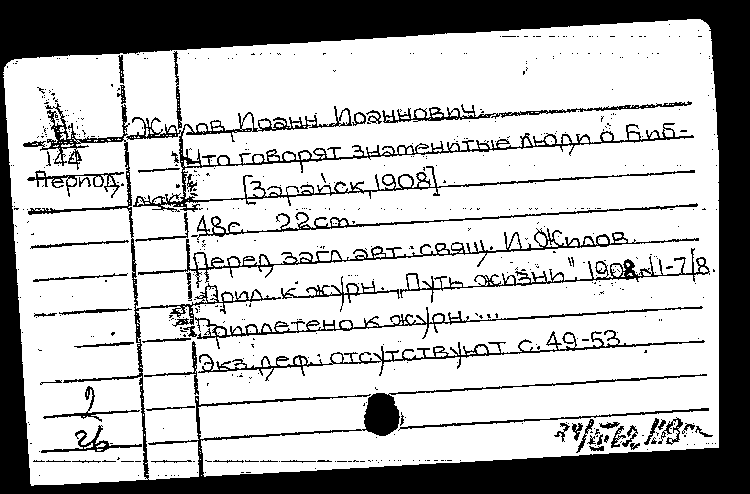 Жилов, Иоанн Иоаннович.
144
Что говорят знаменитые люди о Биб-
Период.
лии. [Зарайск, 1908].
48с. 22см.
Перед загл. авт.: свящ. И. Жилов.
Прил. к журн. „Путь жизни" 1908, №1-7/8.
Приплетено к журн. ...
Экз. деф.: отсутствуют с. 49-53.
2